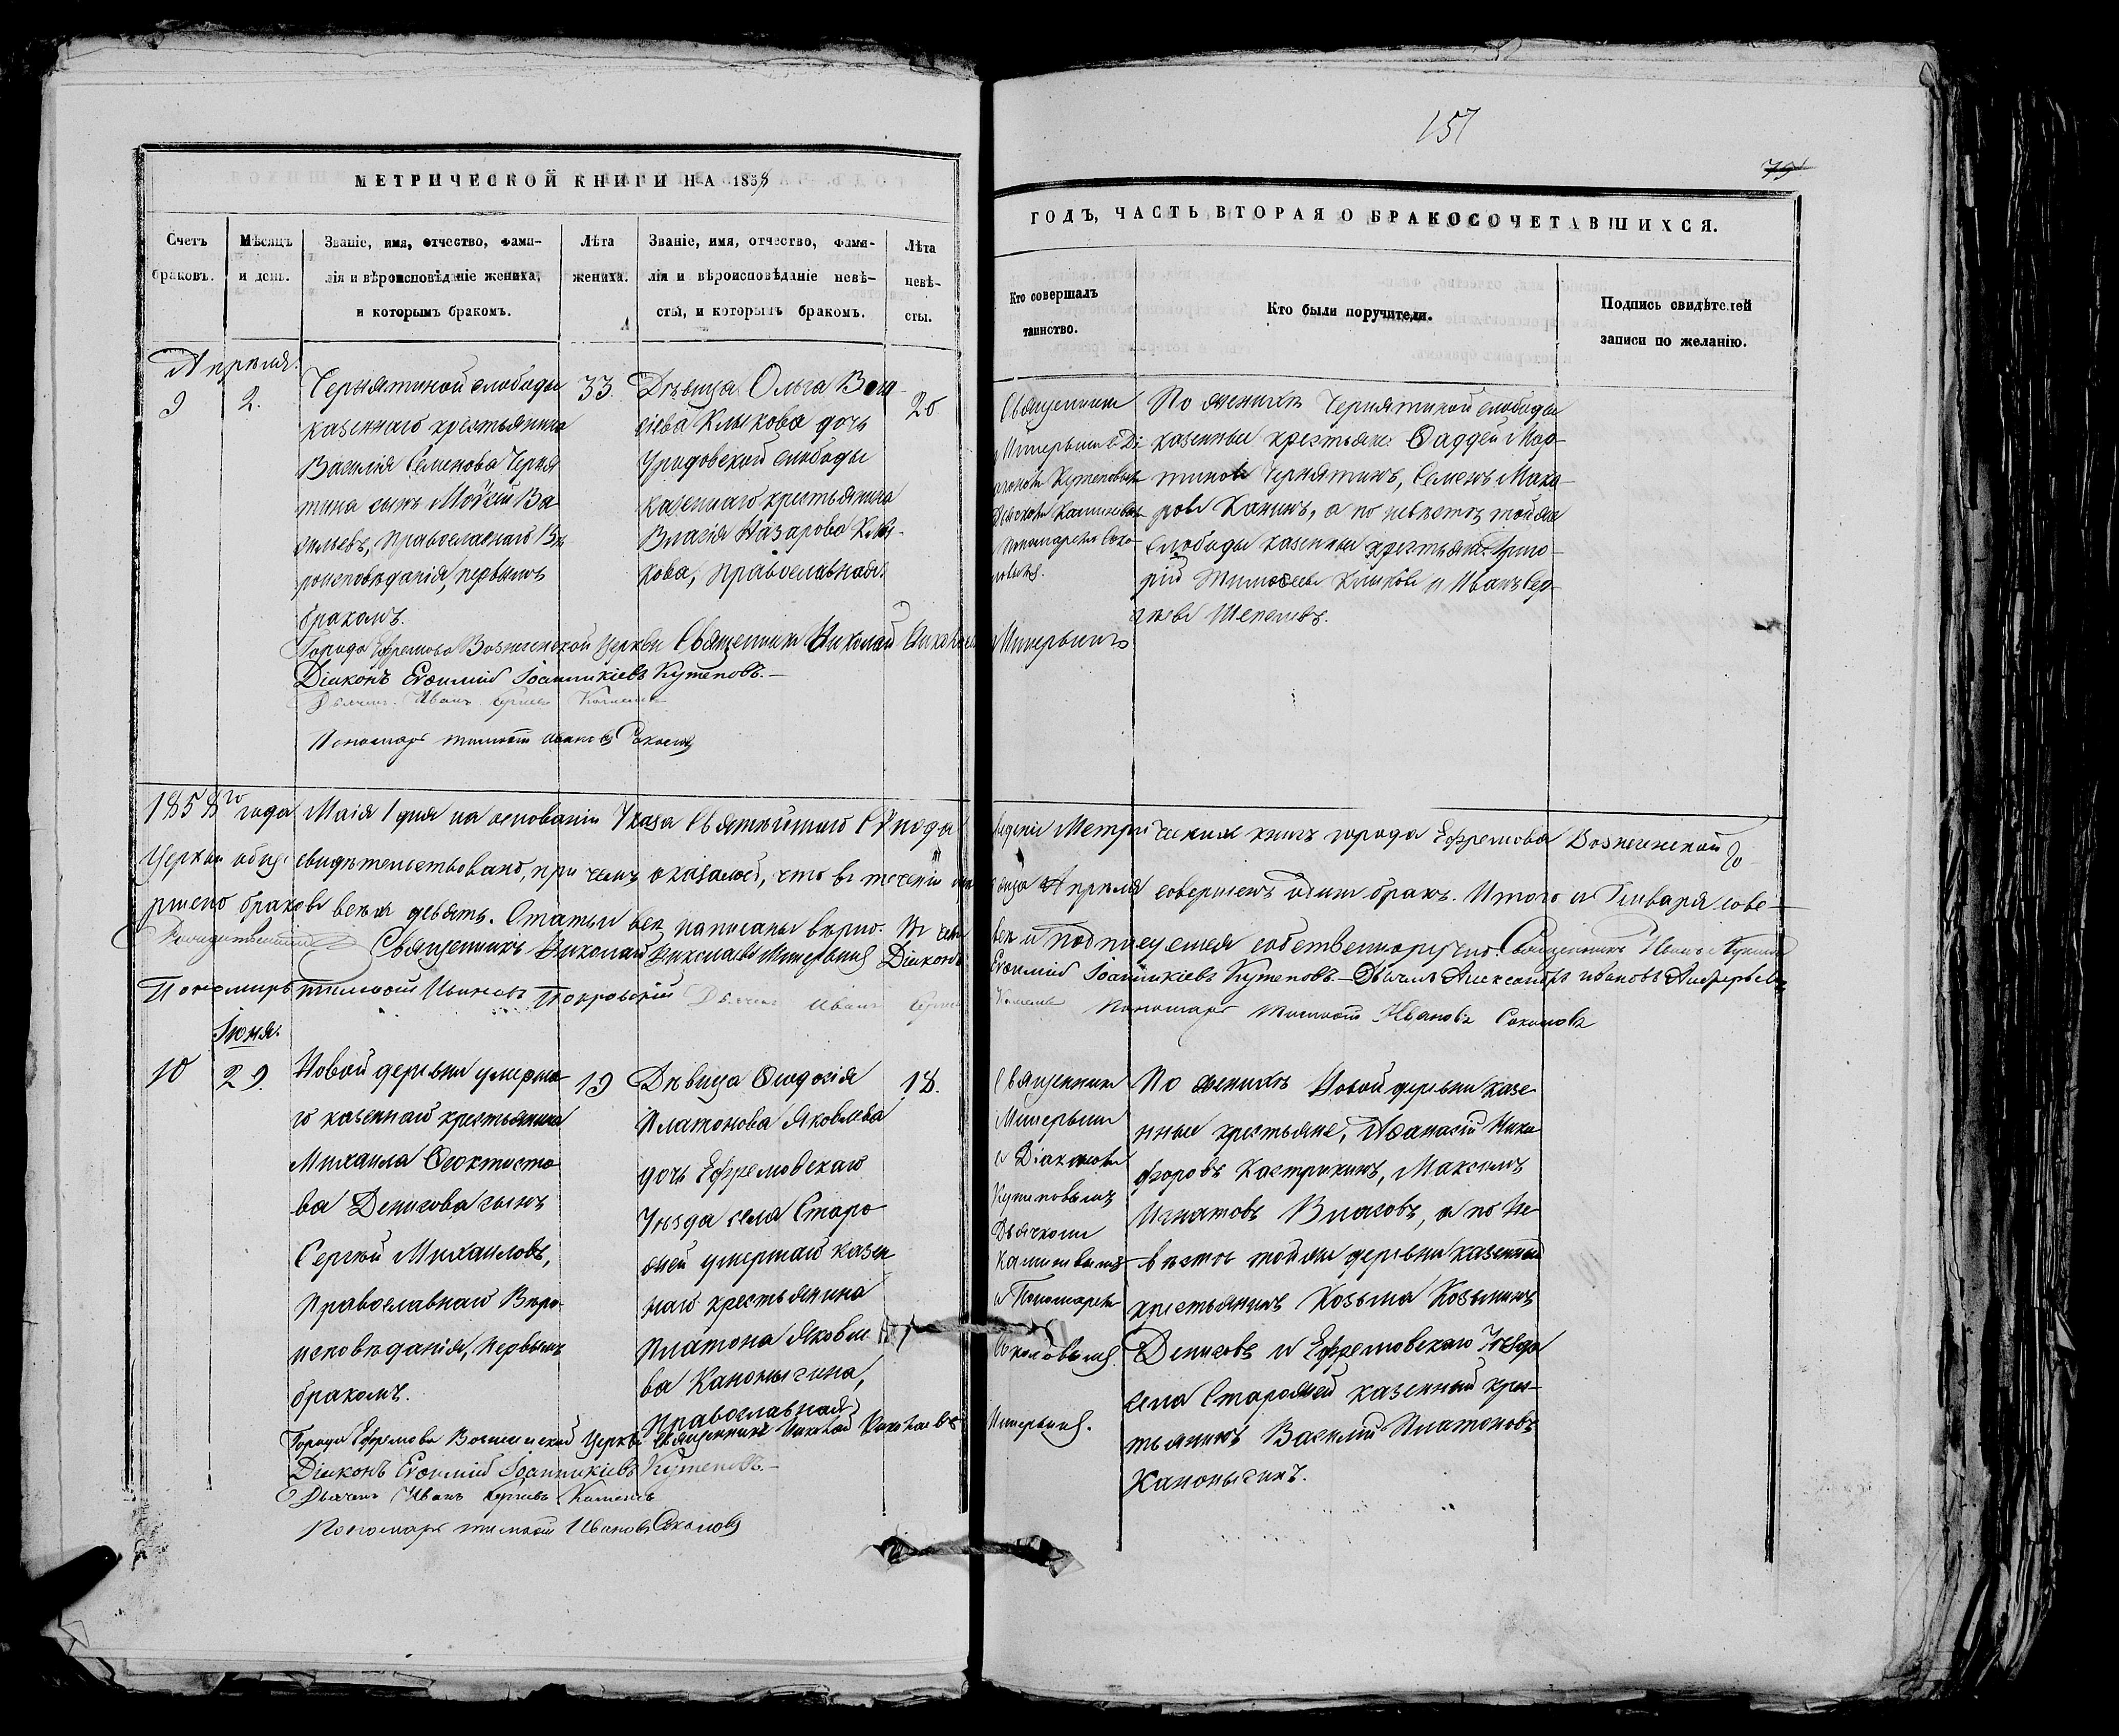 157
79
МЕТРИЧЕСКОЙ КНИГИ НА 1858
ГОДЪ, ЧАСТЬ ВТОРАЯ О БРАКОСОЧЕТАВШИХСЯ.
Счетъ
браковъ.
Мѣсяцъ
и день.
Званіе, имя, отчество, фами-
лія и вѣроисповѣданіе жениха,
и которымъ бракомъ.
Лѣта
жениха.
Званіе, имя, отчество, фами-
лія и вѣроисповѣданіе невѣ-
сты, и которымъ бракомъ.
Лѣта
невѣ-
сты.
Кто совершалъ
таинство.
Кто были поручители.
Подпись свидѣтелей
записи по желанію.
Апрѣля.
9
2.
Чернятиной слободы
казеннаго крестьянина
Василія Семенова Черня
тина сынъ Мойсей Ва
сильевъ, православнаго Вѣ
роисповѣданія, первымъ
бракомъ.
33.
Дѣвица Ольга Вла
сіева Клыкова дочь
слободы
казеннаго крестьянина
Власія Назарова Клы-
кова, православная
20
Священникъ
Минервинъ съ Ді
акономъ Кутеповымъ
Дьячкомъ
Пономаремъ Соко-
ловымъ.
По женихѣ Чернятиной слободы
казенные крестьяне Фаддей Мар-
тиновъ Чернятинъ, Семенъ Мака-
ровъ Ханинъ, а по невѣстѣ той же
слободы казенные крестьяне Григо-
рій Тимофеевъ Клыковъ и Иванъ Сер-
гѣевъ Шепелевъ.
Города Ефремова Вознесенской Церкви Священникъ Николай Николаевъ Минервинъ
Діаконъ Евѳимій Іоанникіевъ Кутеповъ.—
Дьячекъ Иванъ Сергіевъ
Пономарь Тимофей Ивановъ Соколовъ
1858го года Маія 1 дня на основаніи Указа Святѣйшаго Сѵнода веденіе Метрическихъ книгъ города Ефремова Вознесенской
Церкви освидѣтельствовано, при чемъ оказалось, что въ теченіи мѣсяца Апрѣля совершенъ одинъ бракъ. Итого съ Генваря сове-
ршено браковъ всѣхъ девять. Статьи всѣ написаны вѣрно. Въ чемъ всѣ и подписуемся собственноручно. Священникъ Иванъ
Священникъ Николай Николаевъ Минервинъ Діаконъ Евѳимій Іоанникіевъ Кутеповъ.— Дьячекъ Александръ Ивановъ
Пономарь Тимофей Ивановъ Покровскій Дьячекъ Иванъ Сергіевъ Пономарь Тимофей Ивановъ Соколовъ
Іюня.
10
29.
Новой деревни умерша
го казеннаго крестьянина
Михаила Ѳеоктисто
ва Денисова сынъ
Сергѣй Михаиловъ,
Православнаго Вѣро-
исповѣданія, первымъ
бракомъ.
19
Дѣвица Ѳеодосія
Платонова Яковлева
дочь Ефремовскаго
Уѣзда села Старо
жей умершаго казен
наго крестьянина
Платона Яковле
ва Канонычина,
Православная
18.
Священникъ
Минервинъ
съ Діакономъ
Кутеповымъ
Дьячкомъ
и Пономаремъ
Соколовымъ.
По женихѣ Новой деревни казе
нные крестьяне, Аѳанасій Ники
форовъ Кастрикинъ, Максимъ
Игнатовъ Власовъ, а по Не
вѣстѣ той же деревни казенный
крестьянинъ Козьма Козьминъ
Денисовъ и Ефремовскаго Уѣзда
села Старожей казенный крес-
тьянинъ Василій Платоновъ
Канонычинъ.
Города Ефремова Вознесенской Церкви Священникъ Николай Николаевъ Минервинъ.
Діаконъ Евѳимій Іоанникіевъ Кутеповъ.—
Дьячекъ Иванъ Сергіевъ
Пономарь Тимофей Ивановъ Соколовъ